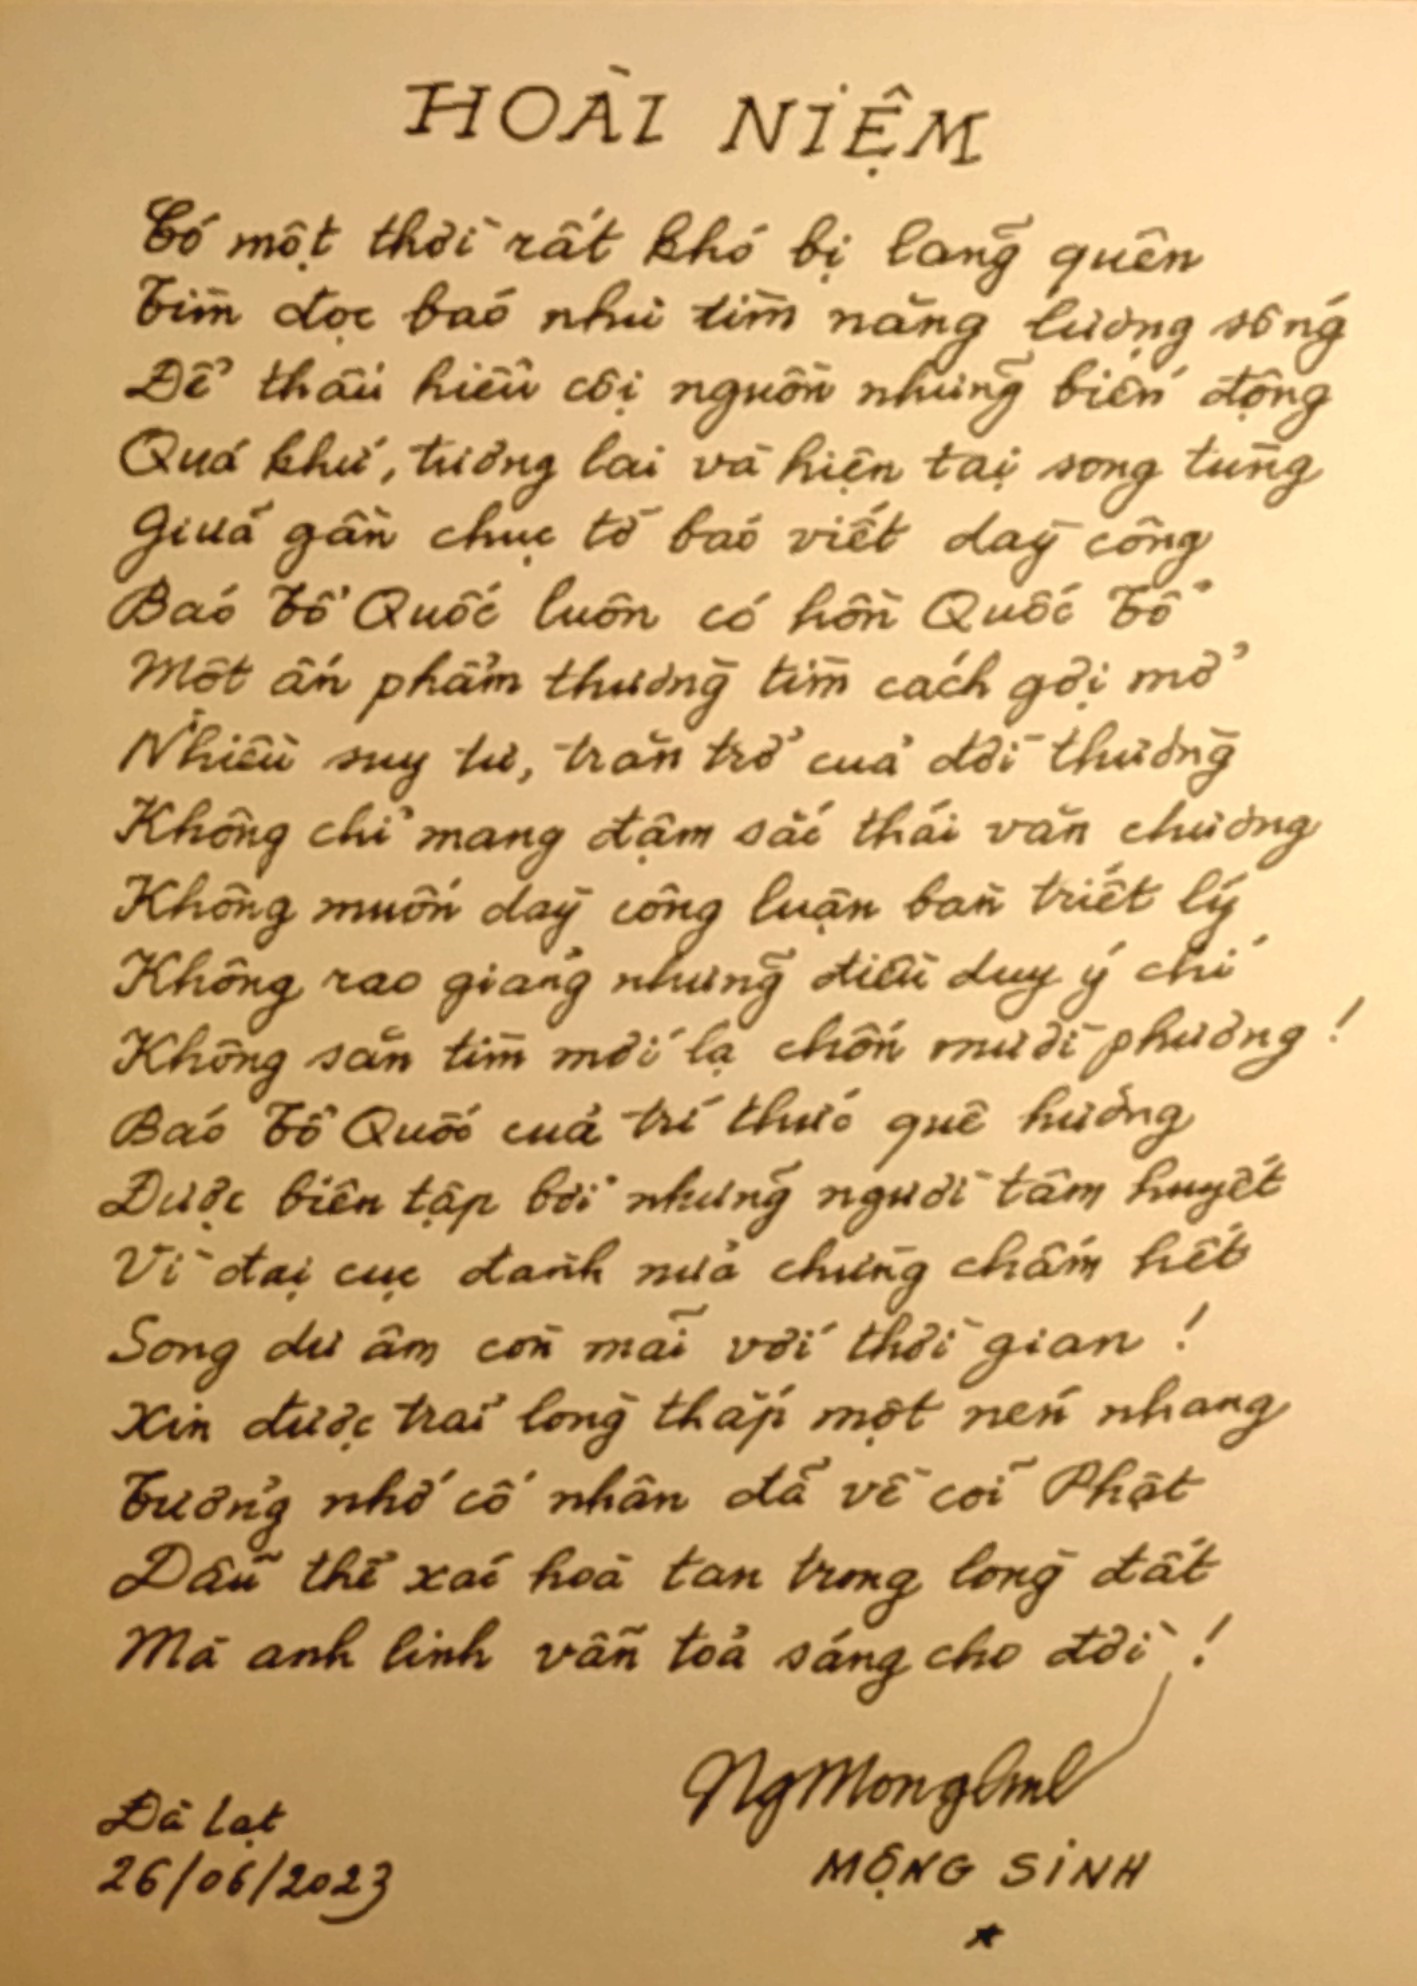 HOÀI NIỆM
Có một thời rất khó bị lãng quên
Tìm đọc báo như tìm năng lượng sống
Để thấu hiểu cội nguồn những biến động
Quá khứ, tương lai và hiện tại song tùng
Giữa gần chục tờ báo viết dày công
Báo Tổ Quốc luôn có hồn Quốc Tổ
Một ấn phẩm thường tìm cách gợi mở
Nhiều suy tư, trăn trở của đời thường
Không chỉ mang đậm sắc thái văn chương
Không muốn dày công luận bàn triết lý
Không rao giảng những điều duy ý chí
Không săn tìm mới lạ chốn mười phương !
Báo Tổ Quốc của trí thức quê hương
Được biên tập bởi những người tâm huyết
Vì đại cục đành nửa chừng chấm hết
Song dư âm còn mãi với thời gian !
Xin được trải lòng thắp một nén nhang
Tưởng nhớ cố nhân đã về cõi Phật
Dẫu thể xác hoà tan trong lòng đất
Mà anh linh vẫn toả sáng cho đời !
Đà Lạt
26/06/2023
MỘNG SINH